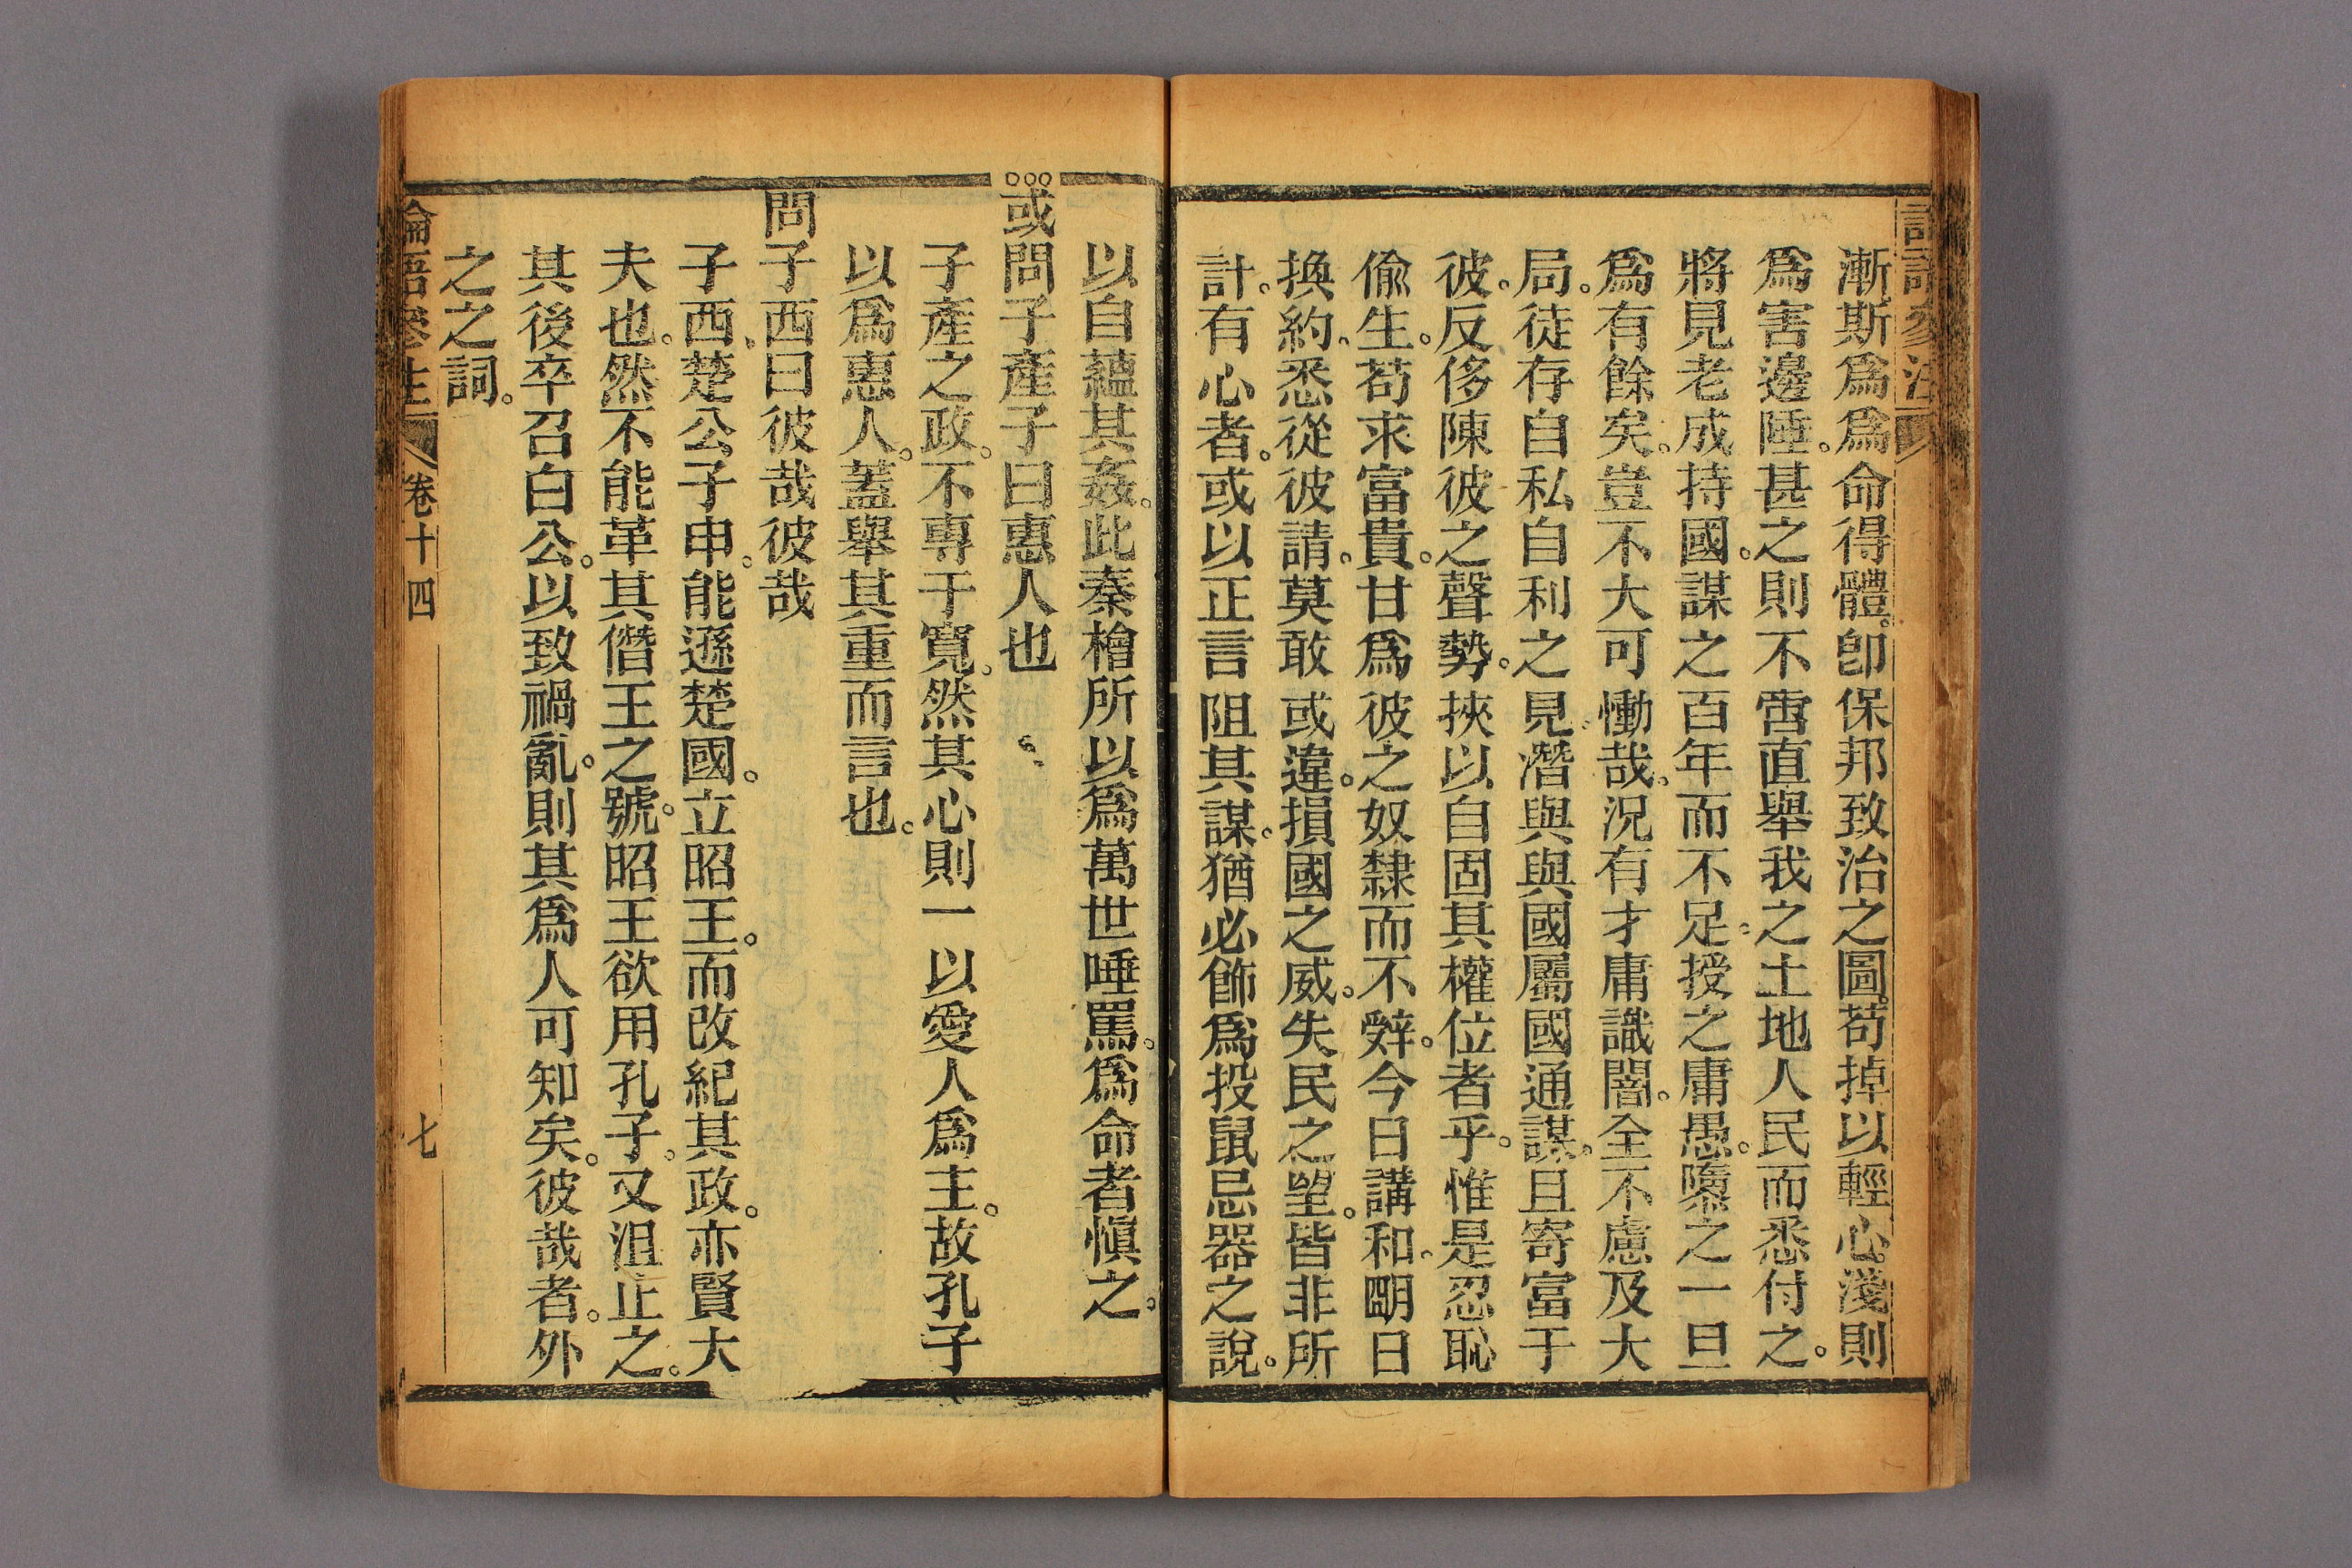 漸斯爲爲命得體。卽保邦致治之圖。苟掉以輕心。淺則
爲害邊陲。甚之則不啻直舉我之土地人民而悉付之。
將見老成持國。謀之百年而不足。授之庸愚。隳之一旦
爲有餘矣。豈不大可慟哉。況有才庸識闇。全不慮及大
局。徒存自私自利之見。潛與與國屬國通謀。且寄富于
彼。反侈陳彼之聲勢。挾以自固其權位者乎。惟是忍恥
偷生。苟求富貴。甘爲彼之奴隸而不辤。今日講和。朙日
換約。悉從彼請。莫敢或違。損國之威。失民之望。皆非所
計。有心者。或以正言阻其謀。猶必飾爲投鼠忌器之說。
以自蘊其姦。此秦檜所以爲萬世唾罵。爲命者愼之。
○○○
或問子產子曰惠人也
子產之政。不專于寬。然其心則一以愛人爲主。故孔子
以爲惠人。蓋舉其重而言也。
問子西曰彼哉彼哉
子西、楚公子申。能遜楚國。立昭王。而改紀其政。亦賢大
夫也。然不能革其僭王之號。昭王欲用孔子。又沮止之。
其後卒召白公。以致禍亂。則其爲人可知矣。彼哉者。外
之之詞。
論語參注 卷十四 七